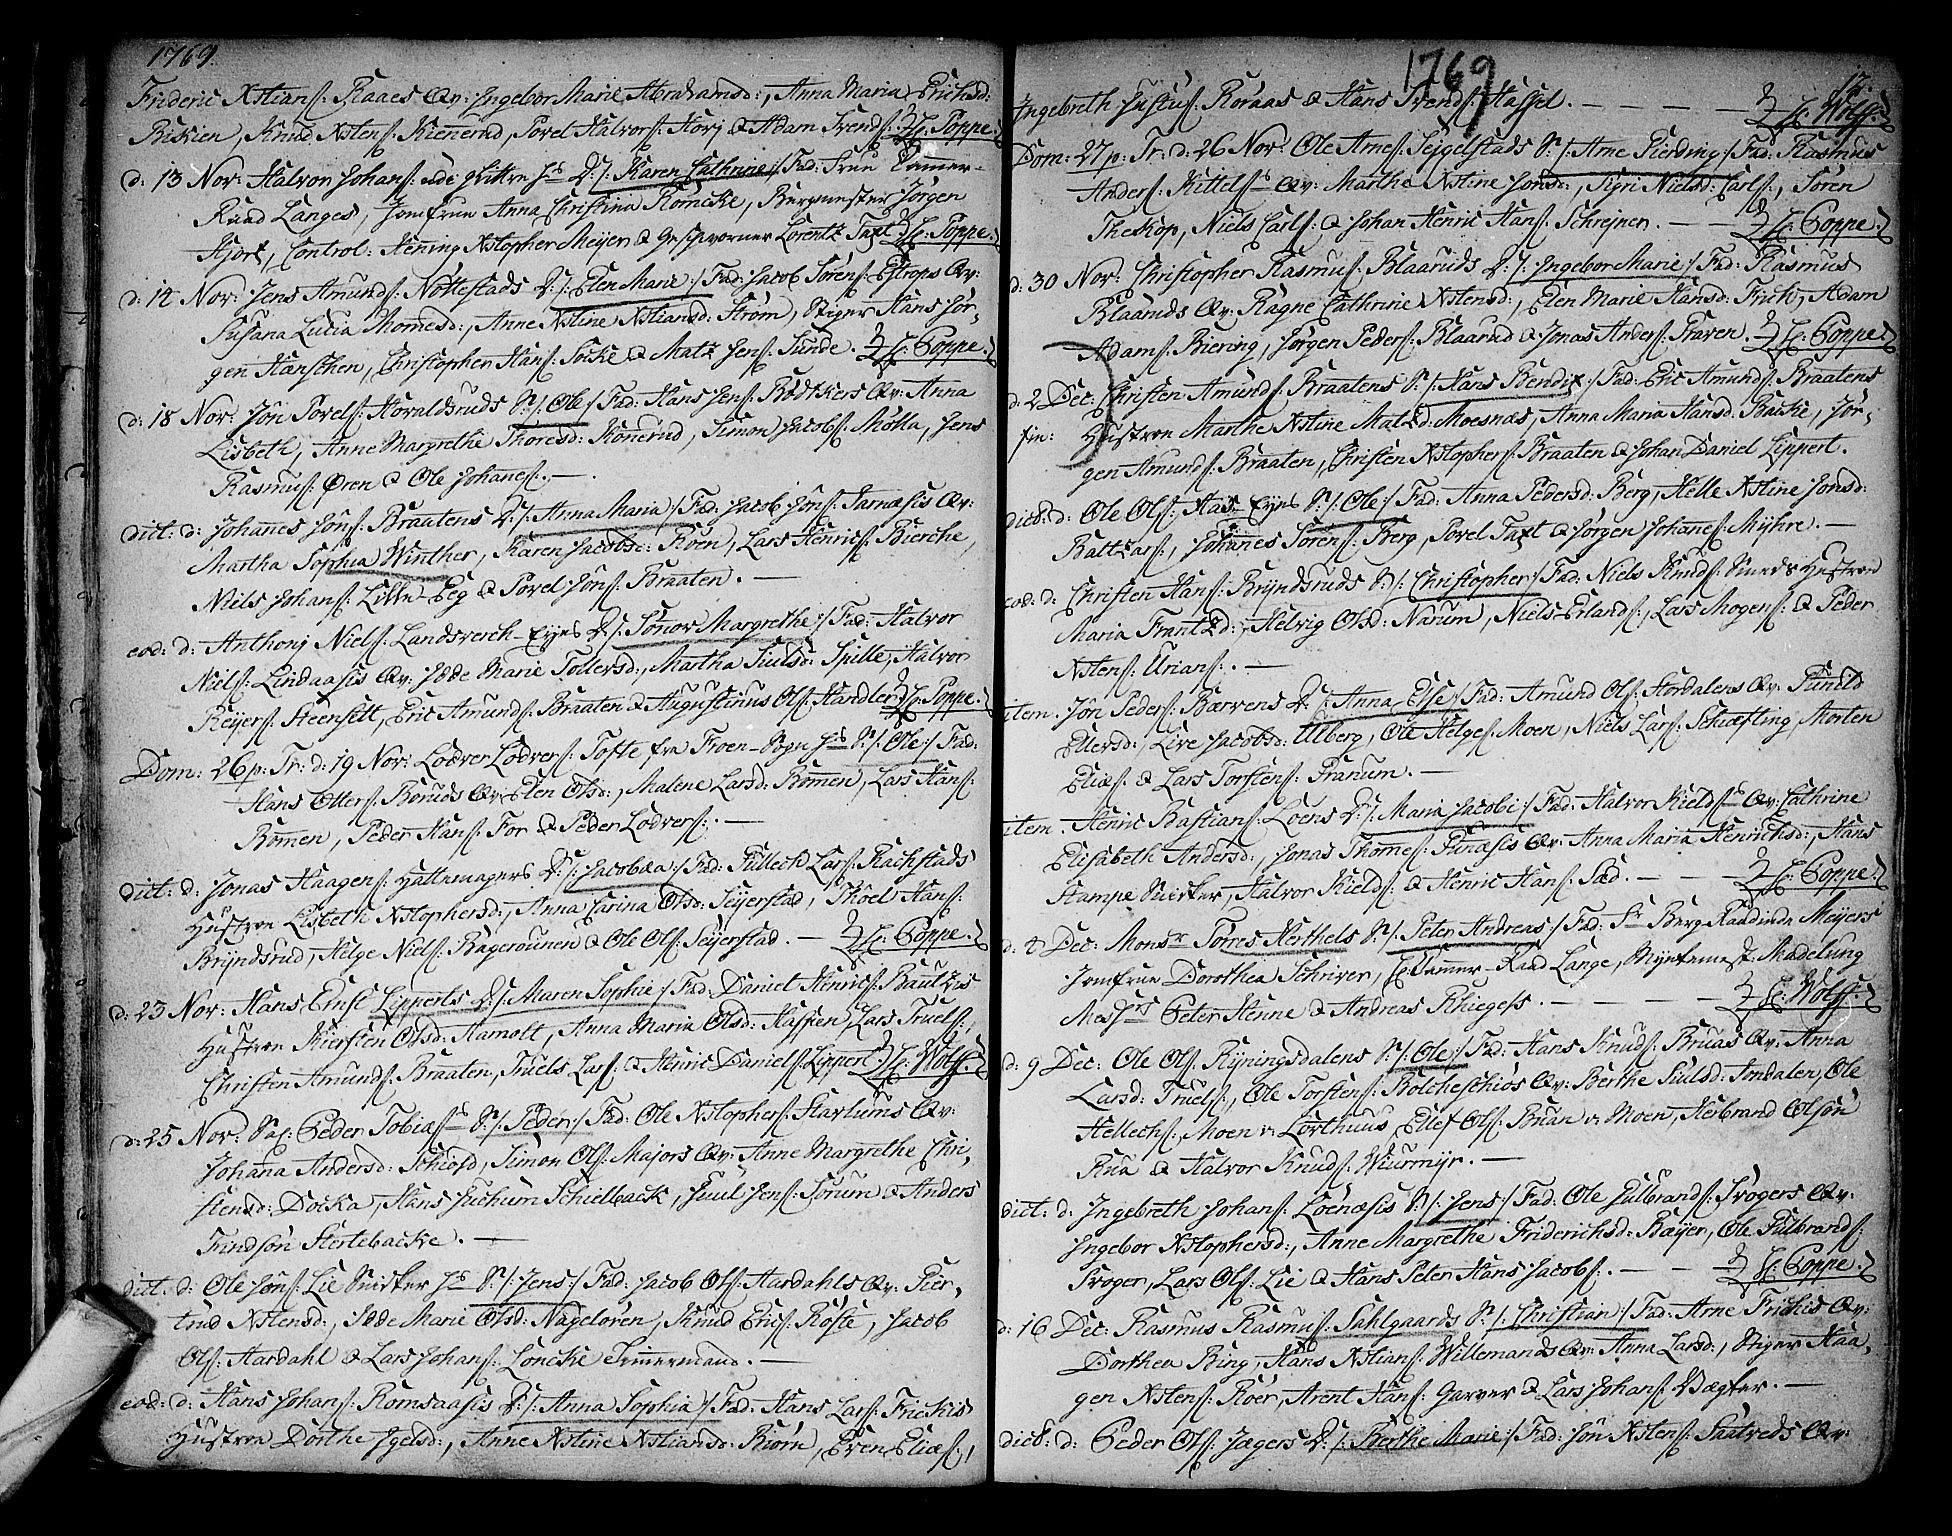 1769.
Frideric Xstians: Raaes Qv: Ingebor Marie Abrahamsd:, Anna Maria Erichsd:
Biskien, Knud Xstens: Kienerud, Povel Halvors: Horj & Adam Svends: H: Poppe.
d: 13 Nov: Halvor Johans: Hs D: /: Karen Cathrine :/ Fad: Frue Cammer-
Raad Langes, Jomfrue Anna Christina Römcke, Burgmester Jörgen
Hjort, Control: Henning Xstopher Meyer & Geschworner Lorentz Taxt. H: Poppe.
d: 14 Nov: Jens Amunds: Nöttestads D: /: Elen Marie :/ Fad: Jacob Sörens: Estrops Qv:
Susana Lucia Thomesd:, Anne Xstine Xstiansd: Ström, Stiger Hans Jör-
gen Hanschen, Christopher Hans: Socke & Matz Jens: Sunde. H: Poppe.
d: 18 Nov: Jön Povels: Horaldsruds S: /: Ole :/ Fad: Hans Jens: Bödtkers Qv: Anna
Lisbeth, Anne Margrethe Thoresd: Könerud, Simon Jacobs: Mölla, Jens
Rasmus: Øren & Ole Johanes: . —
dict: d: Johannes Jöns: Braatens D: /: Anna Maria :/ Fad: Jacob Jöns: Jarnæsis Qv:
Martha Sophia Winther, Karen Jacobsd: Koen, Lars Henrics: Bierche,
Niels Johans: Lille-Eeg & Povel Jöns: Braaten. —
eod: d: Anthonj Niels: Landsverch-Eyes D: /: Sönov Margrethe :/ Fad: Halvor
Niels: Lindaasis Qv: Idde Marie Tollersd:, Martha Juulsd: Spille, Halvor
Reijers: Steensett, Eric Amunds: Braaten & Augustinus Ols: Handler. H: Poppe.
Dom: 26 p: Tr: d: 19 Nov: Lodver Lodvers: Tofte fra Froen-Sogn Hs S: /: Ole :/ Fad:
Hans Otters: Boruds Qv: Elen Olsd:, Malene Larsd: Römen, Lars Hans:
Römen, Peder Hans: For & Peder Lodvers: . —
dict: d: Jonas Haagens: Hattemagers D: /: Jacobæa :/ Fad: Gulleck Lars: Rachstads
Hustroe Lisbeth Xstophersd:, Anna Carina Olsd: Seijerstad, Thoel Hans:
Bryndsrud, Helge Niels: Bagerovnen & Ole Ols: Seijerstad. — H: Poppe.
d: 23 Nov: Hans Ernst Lipperts D: /: Maren Sophie :/ Fad: Daniel Henrics: Bautzis
Hustroe Kiersten Olsd: Harnolt, Anna Maria Olsd: Hassien, Lars Truels:,
Christen Amunds: Braaten, Truels Lars: & Henric Daniels: Lippert. H: Wolff.
d: 25 Nov: Sal: Peder Tobiæs: S: /: Peder :/ Fad: Ole Xstophers: Skarlums Qv:
Johanna Andersd: Schiold, Simon Ols: Majors Qv: Anne Margrethe Chri-
stensd: Docka, Hans Juchum Schielback, Juul Jens: Sorum & Anders
Trindsön Stertebacke. —
dict: d: Ole Jöns: Lie Snidker Hs S: /: Jens :/ Fad: Jacob Ols: Hardahls Qv: Gier-
trud Xstensd:, Idde Marie Olsd: Nagelören, Knud Erics: Roste, Jacob
Ols: Hardahl & Lars Johans: Löncke Tömermand. —
eod: d: Hans Johans: Romsaasis D: /: Anna Sophia :/ Fad: Hans Lars: Frickis
Hustroe Dorthe Igelsd:, Anne Xstine Xstiansd: Biörn, Even Eliæs:,
1769
12.
Ingebreth Justus: Röraas & Hans Svends: Hassel. — — — H: Wolff.
Dom: 27 p: Tr: d: 26 Nov: Ole Arnes: Seggelstads S: /: Arne Gierding :/ Fad: Rasmus
Anders: Kittels: Qv: Martha Xstine Jonsd:, Sigri Nielsd: Carls:, Sören
Theskop, Niels Carls: & Johan Henric Hans: Schrejner. — — H: Poppe.
d: 30 Nov: Christopher Rasmus: Blaaruds D: /: Ingebor Marie :/ Fad: Rasmus
Blaaruds Qv: Ragne Cathrine Xstensd:, Elen Marie Hansd: Frich, Adam
Adams: Biering, Jörgen Peders: Blaarud & Jonas Anders: Graven. H: Poppe.
d: 2 Dec: Christen Amunds: Braatens S: /: Hans Bendix :/ Fad: Eric Amunds: Braatens
fin: Hustroe Marthe Xstine Matzd: Moesnæs, Anna Maria Hansd: Backe, Jör-
gen Amunds: Braaten, Christen Xstophers: Braaten & Johan Daniel Lippert.
dict: d: Ole Ols: Hais Eyes S: /: Ole :/ Fad: Anna Pedersd: Berg, Helle Xstine Jonsd:
Baltzars:, Johannes Sörens: Berg, Povel Taxt & Jörgen Johanes: Myhre. —
eod: d: Christen Hans: Bryndsruds S: /: Christopher :/ Fad: Niels Knuds: Smeds Hustroe
Maria Frantzd:, Helvig Olsd: Narum, Niels Erlands:, Lars Mogens: & Peder
Xstens: Urians: . —
item. Jon Peders: Bærvens D: /: Anna Else :/ Fad: Amund Ols: Stordalens Qv: Gunild
Ellersd:, Live Jacobsd: Ulberg, Ole Helges: Moen, Niels Lars: Schiæfting, Morten
Eliæs: & Lars Torstens: Granum. —
item. Henric Bastians: Loens D: /: Maria Jacobi :/ Fad: Halvor Kields: Qv: Cathrine
Elisabeth Andersd:, Jonas Thomes: Gunæsis Qv: Anna Maria Henrichsd:, Hans
Stampe Snidker, Halvor Kields: & Henric Hans: Sæd. — — — H: Poppe.
d: 4 Dec: Monsr Törres Herthels S: /: Peter Andreas :/ Fad: Fr Berg-Raadinde Meijers
Jomfrue Dorothea Schriver, Hr Cammer-Raad Lange, Myntemest: Madelung
Messrs Peter Henne & Andreas Kliegess. — — — — — H: Wolff.
d: 9 Dec: Ole Ols: Ryningsdalens S: /: Ole :/ Fad: Hans Knuds: Bruas Qv: Anna
Larsd: Truels:, Ole Torstens: Bolcheschiös Qv: Berthe Juulsd: Jondalen, Ole
Hellechs: Moen v: Lorthuus, Ellef Ols: Bruan v: Moen, Herbrand Olsön
Rua & Halvor Knuds: Wiurmyr. —
dict: d: Ingebreth Johans: Loenæsis S: /: Jens :/ Fad: Ole Gulbrands: Svogers Qv:
Ingebor Xstophersd:, Anne Margrethe Friderichsd: Bæyer, Ole Gulbrands:
Svoger, Lars Ols: Lie & Hans Peter Hans: Jacobs: . — — H: Poppe.
d: 16 Dec: Rasmus Rasmus: Sahlgaards S: /: Christian :/ Fad: Arne Frickis Qv:
Dorthea Bing, Hans Xstians: Willemands Qv: Anna Larsd:, Stiger Haa-
gen Xstens: Roer, Arent Hans: Garver & Lars Johans: Vægter. —
dict: d: Peder Ols: Jægers D: /: Berthe Marie :/ Fad: Jon Xstens: Saatveds Qv: